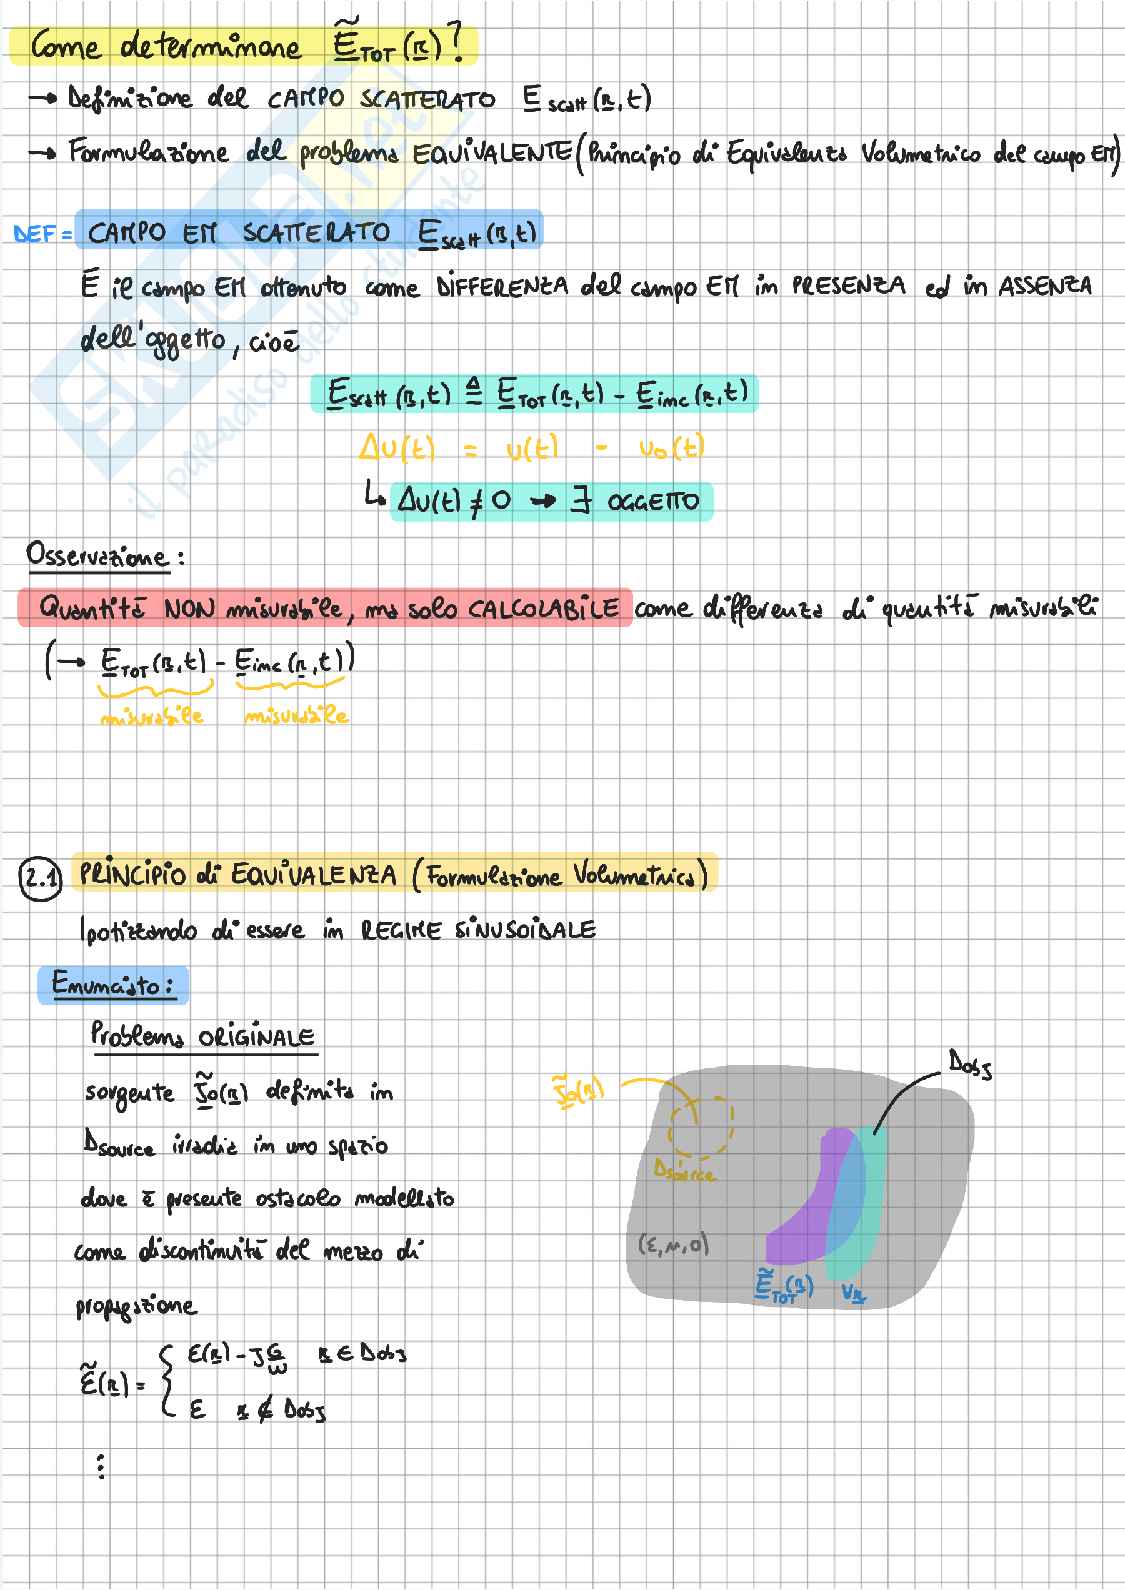 Come determinare Ẽ_TOT(r)?
→ Definizione del CAMPO SCATTERATO E_scatt(r,t)
→ Formulazione del problema EQUIVALENTE (Principio di Equivalenza Volumetrico del campo EM)
DEF = CAMPO EM SCATTERATO E_scatt(r,t)
È il campo EM ottenuto come DIFFERENZA del campo EM in PRESENZA ed in ASSENZA
dell'oggetto, cioè
E_scatt(r,t) ≜ E_TOT(r,t) - E_inc(r,t)
Δu(t) = u(t) - u_0(t)
↳ Δu(t) ≠ 0 → ∃ OGGETTO
Osservazione:
Quantità NON misurabile, ma solo CALCOLABILE come differenza di quantità misurabili
(→ E_TOT(r,t) - E_inc(r,t))
misurabile misurabile
2.1 PRINCIPIO di EQUIVALENZA (Formulazione Volumetrica)
Ipotizzando di essere in REGIME SINUSOIDALE
Enunciato:
Problema ORIGINALE
sorgente J̃_0(r) definita in
D_source irradia in uno spazio
dove è presente ostacolo modellato
come discontinuità del mezzo di
propagazione
ε̃(r) = { ε(r) - j σ/ω r ∈ D_obj
ε r ∉ D_obj
⋮
J̃_0(r)
D_obj
D_source
(ε, μ, 0)
Ẽ_TOT(r) V_r
SKUOLA.net
il paradiso dello studente